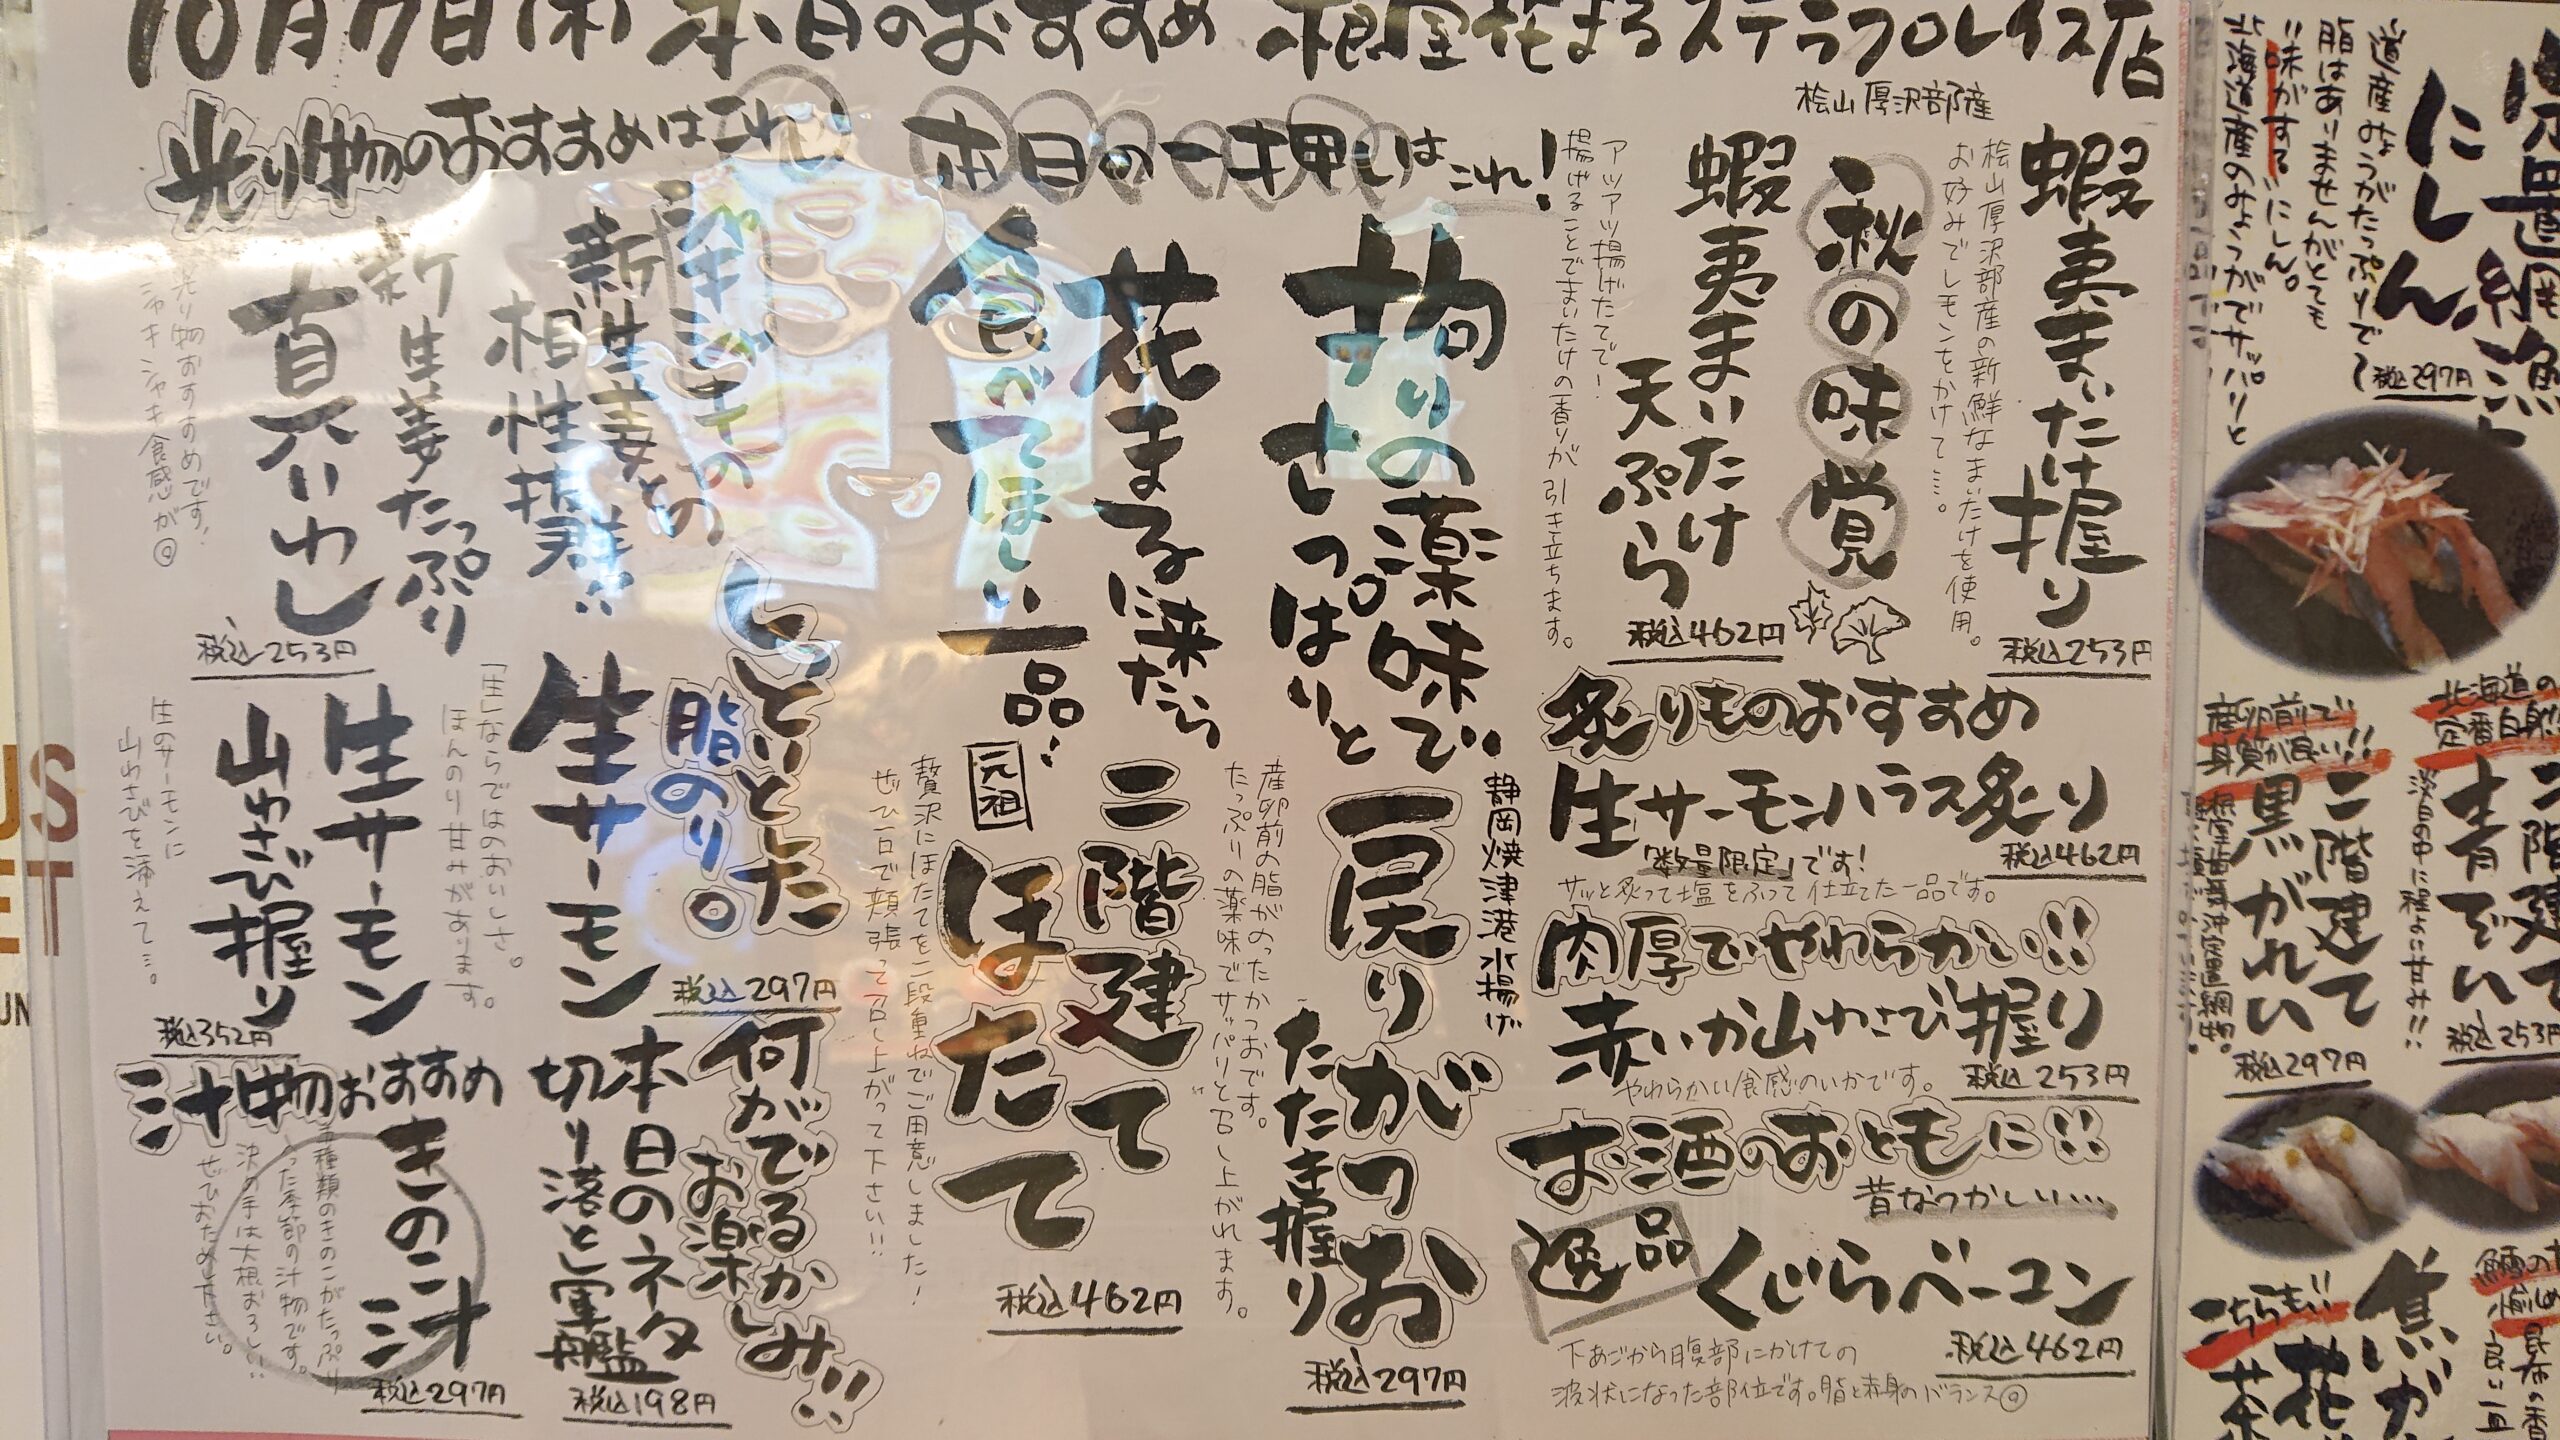 10月7日(木) 本日のおすすめ 根室花まるステラプレイス店
桧山厚沢部産
蝦夷まいたけ握り
桧山厚沢部産の新鮮なまいたけを使用。
お好みでレモンをかけて…。
税込253円
秋の味覚
蝦夷まいたけ
天ぷら
アツアツ揚げたてで!
揚げることでまいたけの香りが引き立ちます。
税込462円
炙りものおすすめ
生サーモンハラス炙り
税込462円
「数量限定」です!
サッと炙って塩をふって仕立てた一品です。
肉厚でやわらかい!!
赤いか山わさび握り
税込253円
やわらかい食感のいかです。
お酒のおともに!!
昔なつかしい…
逸品
くじらベーコン
税込462円
下あごから腹部にかけての
波状になった部位です。脂と赤身のバランス◎
本日の一押しはこれ!
静岡焼津港水揚げ
拘りの薬味で
さっぱりと
戻りがつお
たたき握り
産卵前の脂がのったかつおです。
たっぷりの薬味でサッパリと召し上がれます。
税込297円
花まるに来たら
食べてほしい一品!
元祖
二階建て
ほたて
贅沢にほたてを二段重ねでご用意しました!
ぜひ一口で頬張って召し上がって下さい!!
税込462円
光り物のおすすめはこれ!
新生姜との
相性抜群!!
新生姜たっぷり
真いわし
光り物おすすめです!
シャキシャキ食感が◎
税込253円
しっとりとした
脂のり。
生サーモン
「生」ならではのおいしさ。
ほんのり甘みがあります。
税込297円
生サーモン
山わさび握り
生のサーモンに
山わさびを添えて…。
税込352円
何がでるか
お楽しみ!!
本日のネタ
切り落とし軍艦
税込198円
汁物おすすめ
きのこ汁
種類のきのこがたっぷり
った季節の汁物です。
決め手は大根おろし!!
ぜひおためし下さい。
税込297円
にしん
道産みょうがたっぷりで
脂はありませんがとても
味がするにしん。
北海道産のみょうがでサッパリと
税込297円
北海道の
定番白身!!
青ぞい
淡白の中に程よい甘み!!
税込253円
産卵前で
身質が良い!!
二階建て
黒がれい
税込297円
こちらも!!